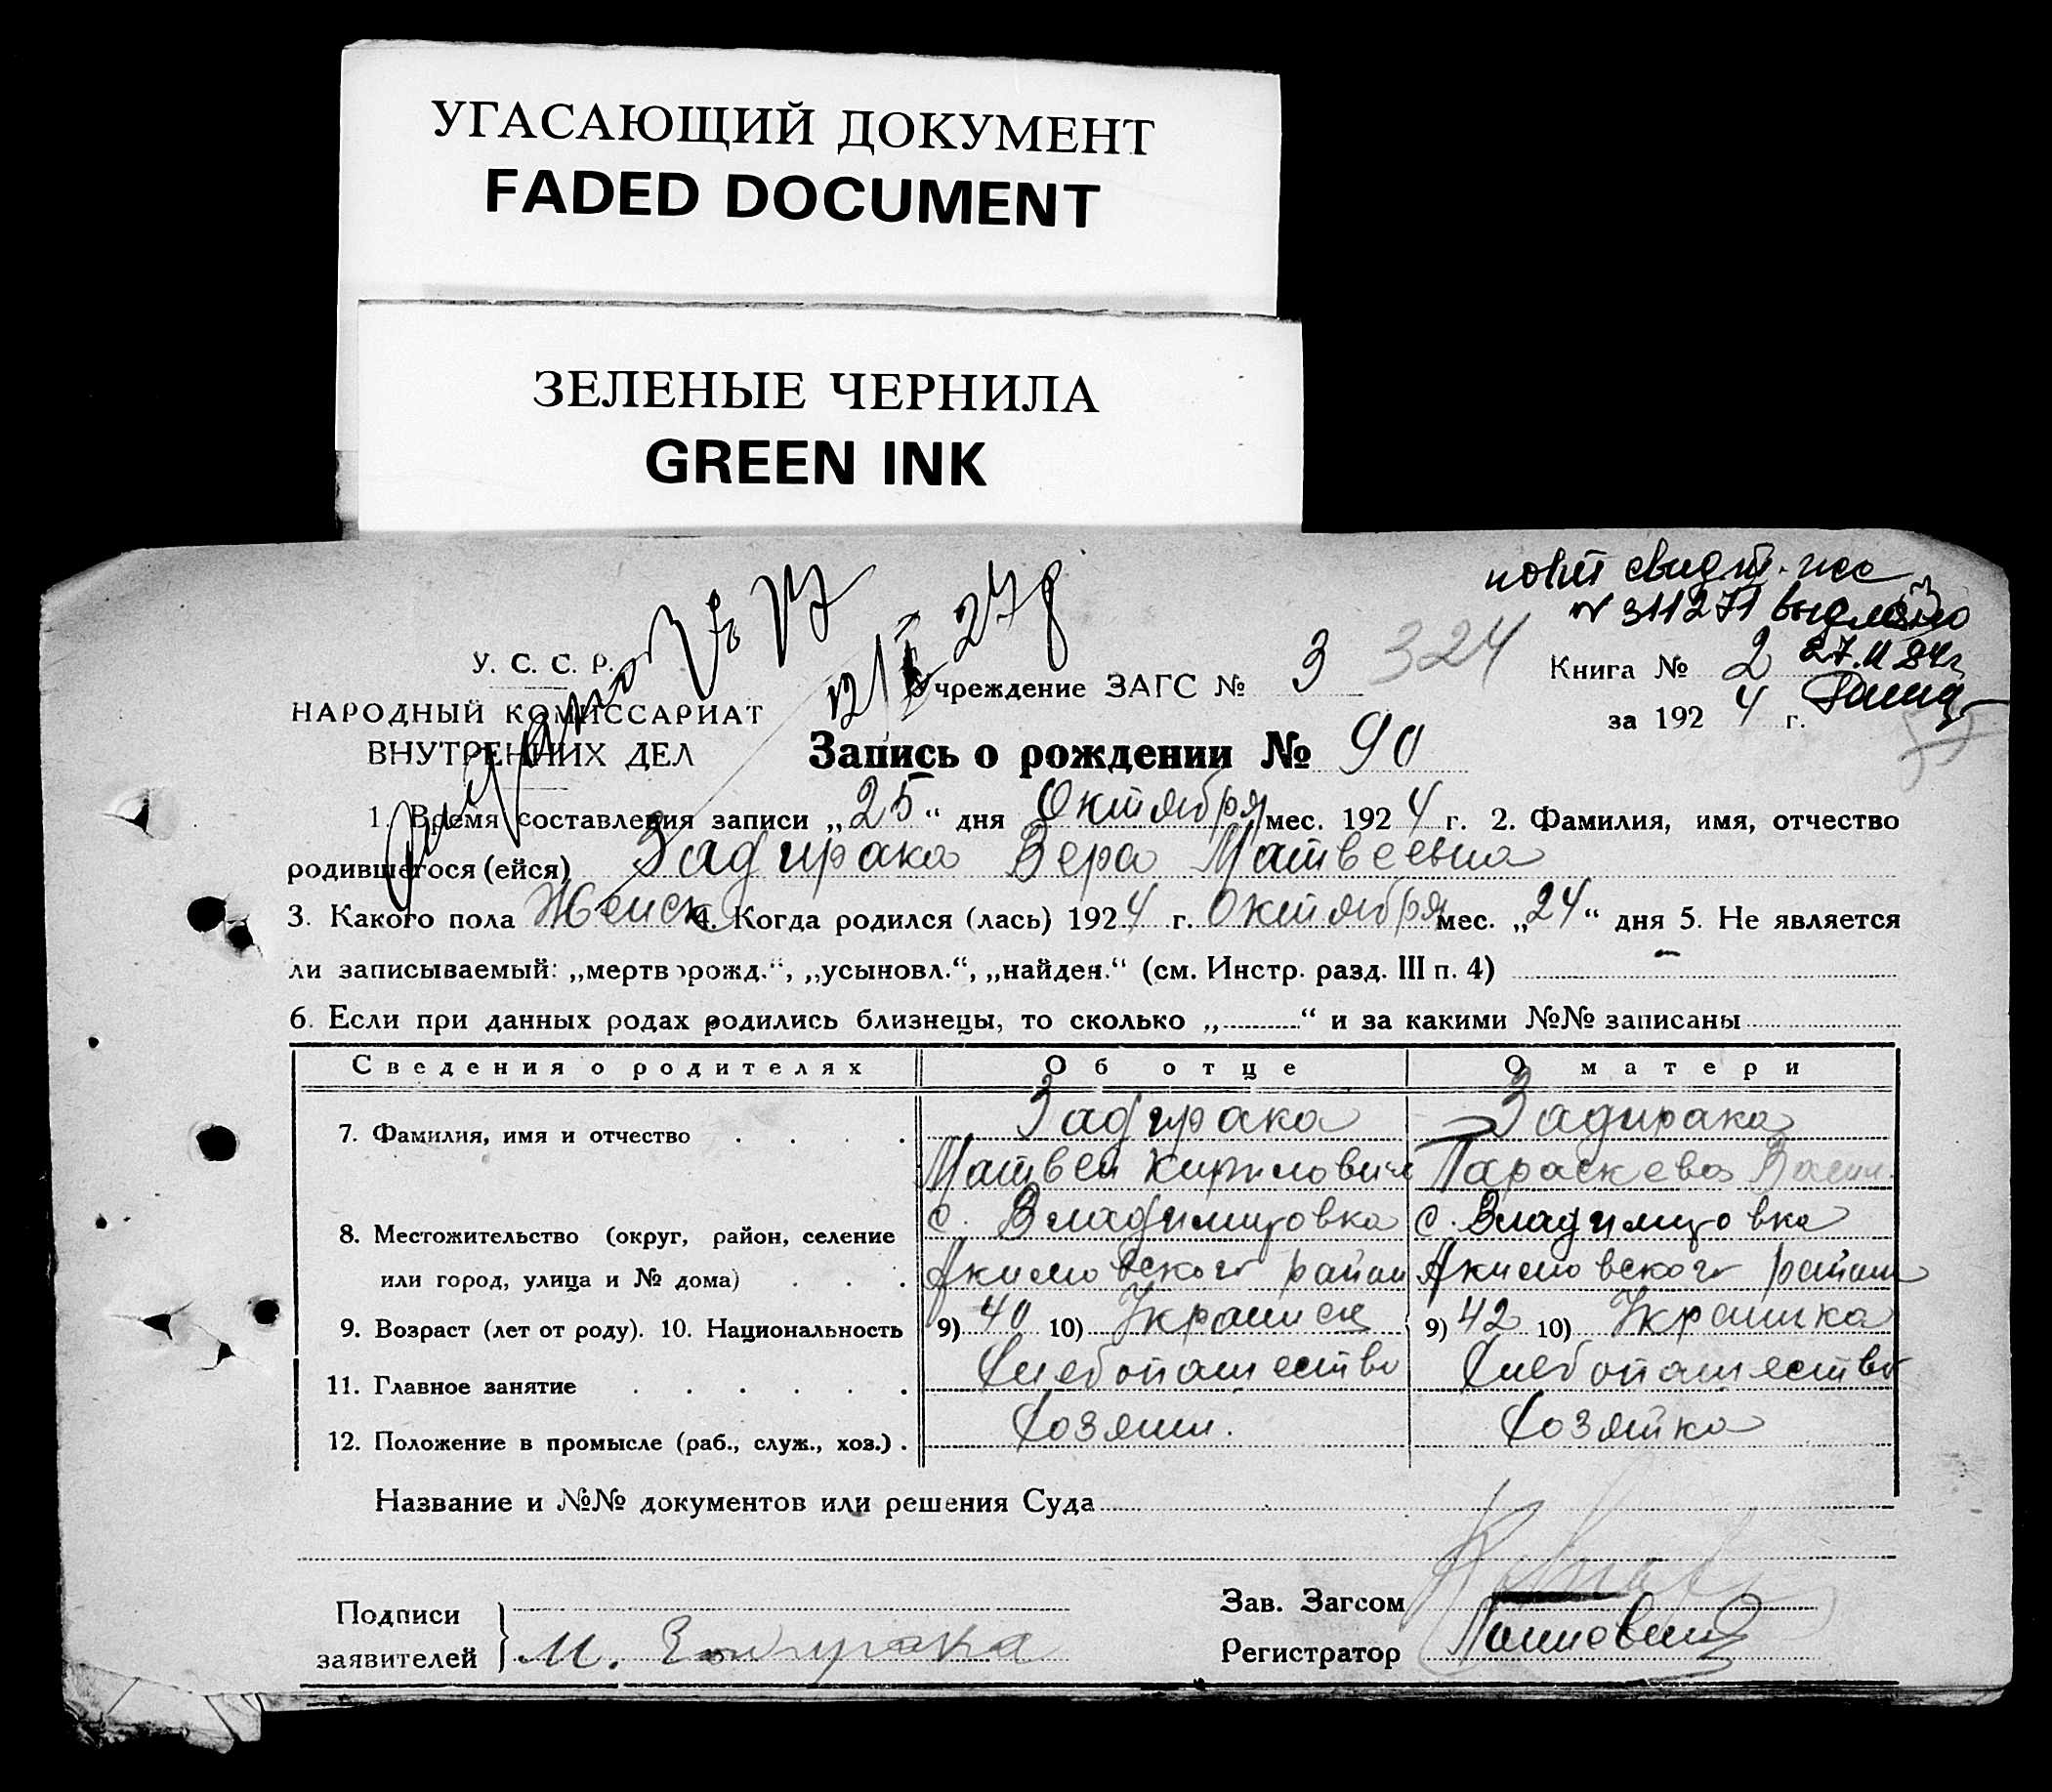 УГАСАЮЩИЙ ДОКУМЕНТ
FADED DOCUMENT
ЗЕЛЕНЫЕ ЧЕРНИЛА
GREEN INK
№ 311271
27.II 84г
У. С. С. Р.
НАРОДНЫЙ КОМИССАРИАТ
ВНУТРЕННИХ ДЕЛ
Учреждение ЗАГС № 3 324
Книга № 2
за 1924 г.
Запись о рождении № 90
1. Время составления записи „25“ дня Октября мес. 1924 г. 2. Фамилия, имя, отчество
родившегося (ейся) Задирака Вера Матвеевна
3. Какого пола Женск 4. Когда родился (лась) 1924 г. Октября мес. „24“ дня 5. Не является
ли записываемый: „мертворожд.“, „усыновл.“, „найден.“ (см. Инстр. разд. III п. 4) -
6. Если при данных родах родились близнецы, то сколько „ “ и за какими №№ записаны
Сведения о родителях Об отце О матери
7. Фамилия, имя и отчество Задирака Задирака
Матвей Кирилович Параскева Васил
8. Местожительство (округ, район, селение с. Владимировка с. Владимировка
или город, улица и № дома) Акимовского район Акимовского район
9. Возраст (лет от роду). 10. Национальность 9) 40 10) Украинец 9) 42 10) Украинка
11. Главное занятие Хлебопашество Хлебопашество
12. Положение в промысле (раб., служ., хоз.) Хозяин. Хозяйка
Название и №№ документов или решения Суда
Подписи
заявителей М. Задирака
Зав. Загсом
Регистратор